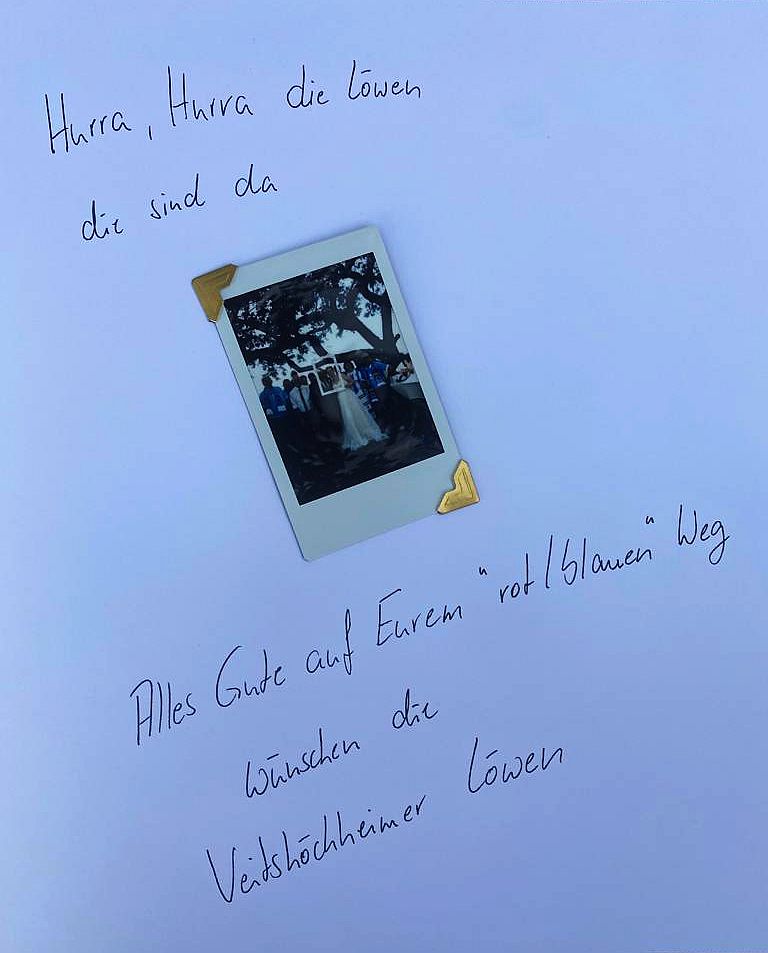 Hurra, Hurra die Löwen
die sind da
Alles Gute auf Eurem "rot/blauen" Weg
wünschen die
Veitshöchheimer Löwen